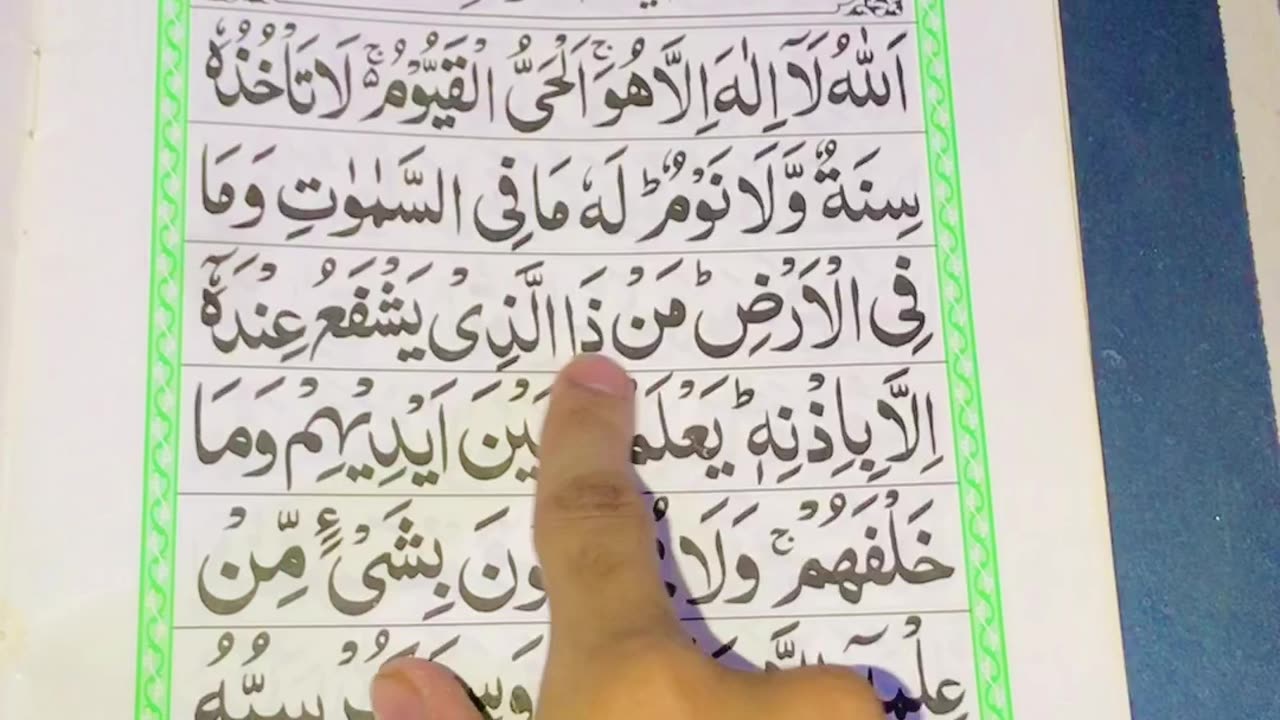 اَللّٰهُ لَآ اِلٰهَ اِلَّا هُوَ ۚ اَلْحَیُّ الْقَیُّوْمُ ۚ۬ لَا تَاْخُذُهٗ
سِنَةٌ وَّلَا نَوْمٌ ؕ لَهٗ مَا فِی السَّمٰوٰتِ وَمَا
فِی الْاَرْضِ ؕ مَنْ ذَا الَّذِیْ یَشْفَعُ عِنْدَهٗۤ
اِلَّا بِاِذْنِهٖ ؕ یَعْلَمُ بَیْنَ اَیْدِیْهِمْ وَمَا
خَلْفَهُمْ ۚ وَلَا بِشَیْءٍ مِّنْ